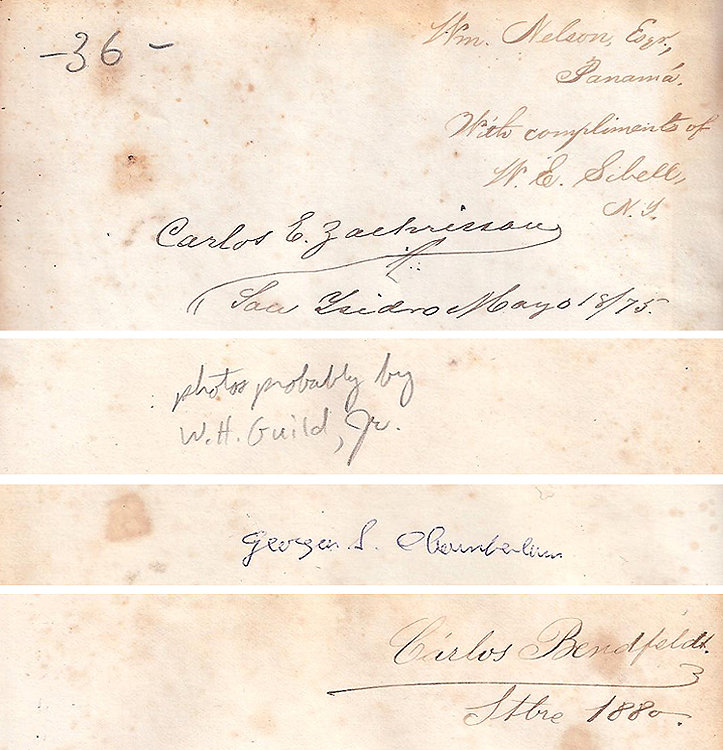 -36-
Wm. Nelson, Esqr,
Panamá.
With compliments of
W. E. Sibell,
N.Y.
Carlos E. Zachrisson
San Isidro Mayo 18/75.
photos probably by
W.H. Guild, Jr.
Georges S. Chamberlain
Cárlos Bendfeldt.
Stbre 1880.